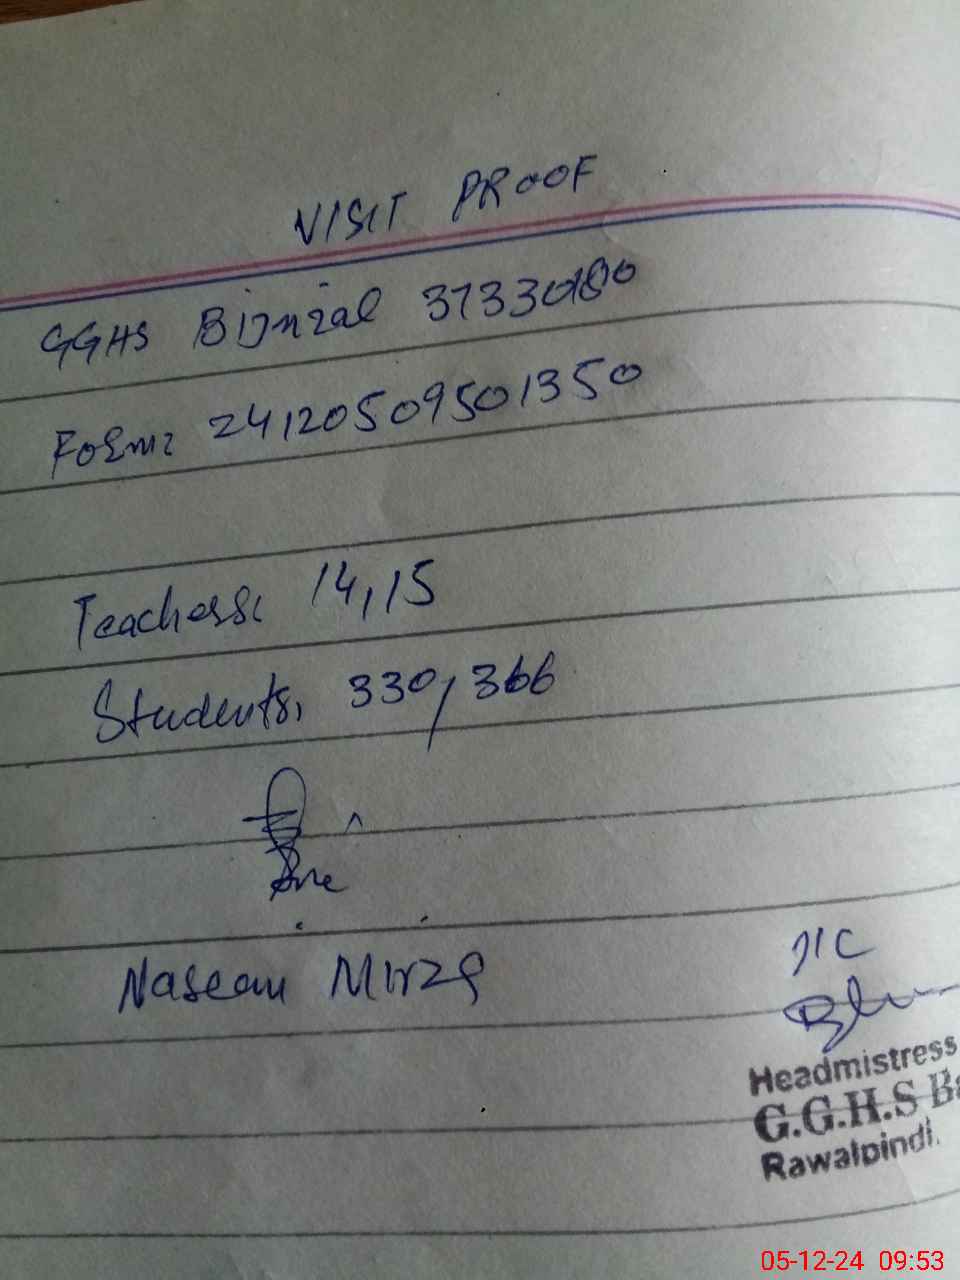 VISIT PROOF
GGHS Bijnial 37330180
Form: 24120509501350
Teachers: 14,15
Students, 330, 366
Naseem Mirza
I/C
Headmistress
G.G.H.S Ba
Rawalpindi.
05-12-24 09:53